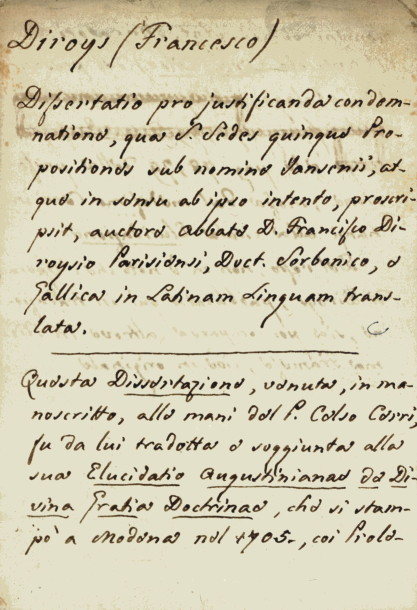 Diroys (Francesco)
Dissertatio pro justificanda condem-
natione, qua S. Sedes quinque Pro-
positiones sub nomine Jansenii, at-
que in sensu ab ipso intento, proscri-
psit, auctore Abbate D. Francisco Di-
roysio Parisiensi, Doct. Sorbonico, e
Gallica in Latinam Linguam trans-
lata.
Questa Dissertazione, venuta, in ma-
noscritto, alle mani del P. Celso Cerri,
fu da lui tradotta e soggiunta alla
sua Elucidatio Augustinianae de Di-
vina Gratia Doctrinae, che si stam-
pò a Modena nel 1705., coi Piolo-